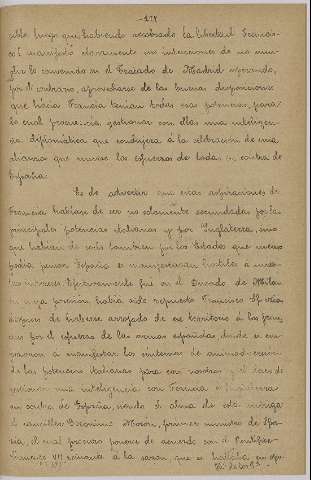 -178
sible, luego que habiendo recobrado la libertad Francis-
co I manifestó claramente su intenciones de no cum-
plir lo convenido en el Tratado de Madrid esperando,
por el contrario, aprovecharse de las buenas disposiciones
que hácia Francia tenian todas esas potencias, para
lo cual procuraria gestionar con ellas una inteligencia
diplomática que condujera á la celebracion de una
alianza que uniese los esfuerzos de todas en contra de
España.
Es de advertir que esas aspiraciones de
Francisco habian de ser no solamente secundadas por las
principales potencias italianas y por Inglaterra, sino
que habian de serlo tambien por los Estados que menos
podia pensar España se manifestaran hostiles á
intereses. Efectivamente fué en el Ducado de Milan
en cuya posesion habia sido repuesto Francisco Sforcia
despues de haberse arrojado de ese territorio á los fran-
ceses por el esfuerzo de las armas españolas donde se em-
pezaron á manifestar los sintomas de animadversion
de las potencias italianas para con nosotros y el deseo de
gestionar una inteligencia con Francia é Inglaterra
en contra de España, siendo el alma de esta intriga
el canciller Gerónimo Moron, primer ministro de Sfor-
cia, el cual procuró ponerse de acuerdo con el Pontífice
Clemente VII reinante á la sazon, que se hallaba